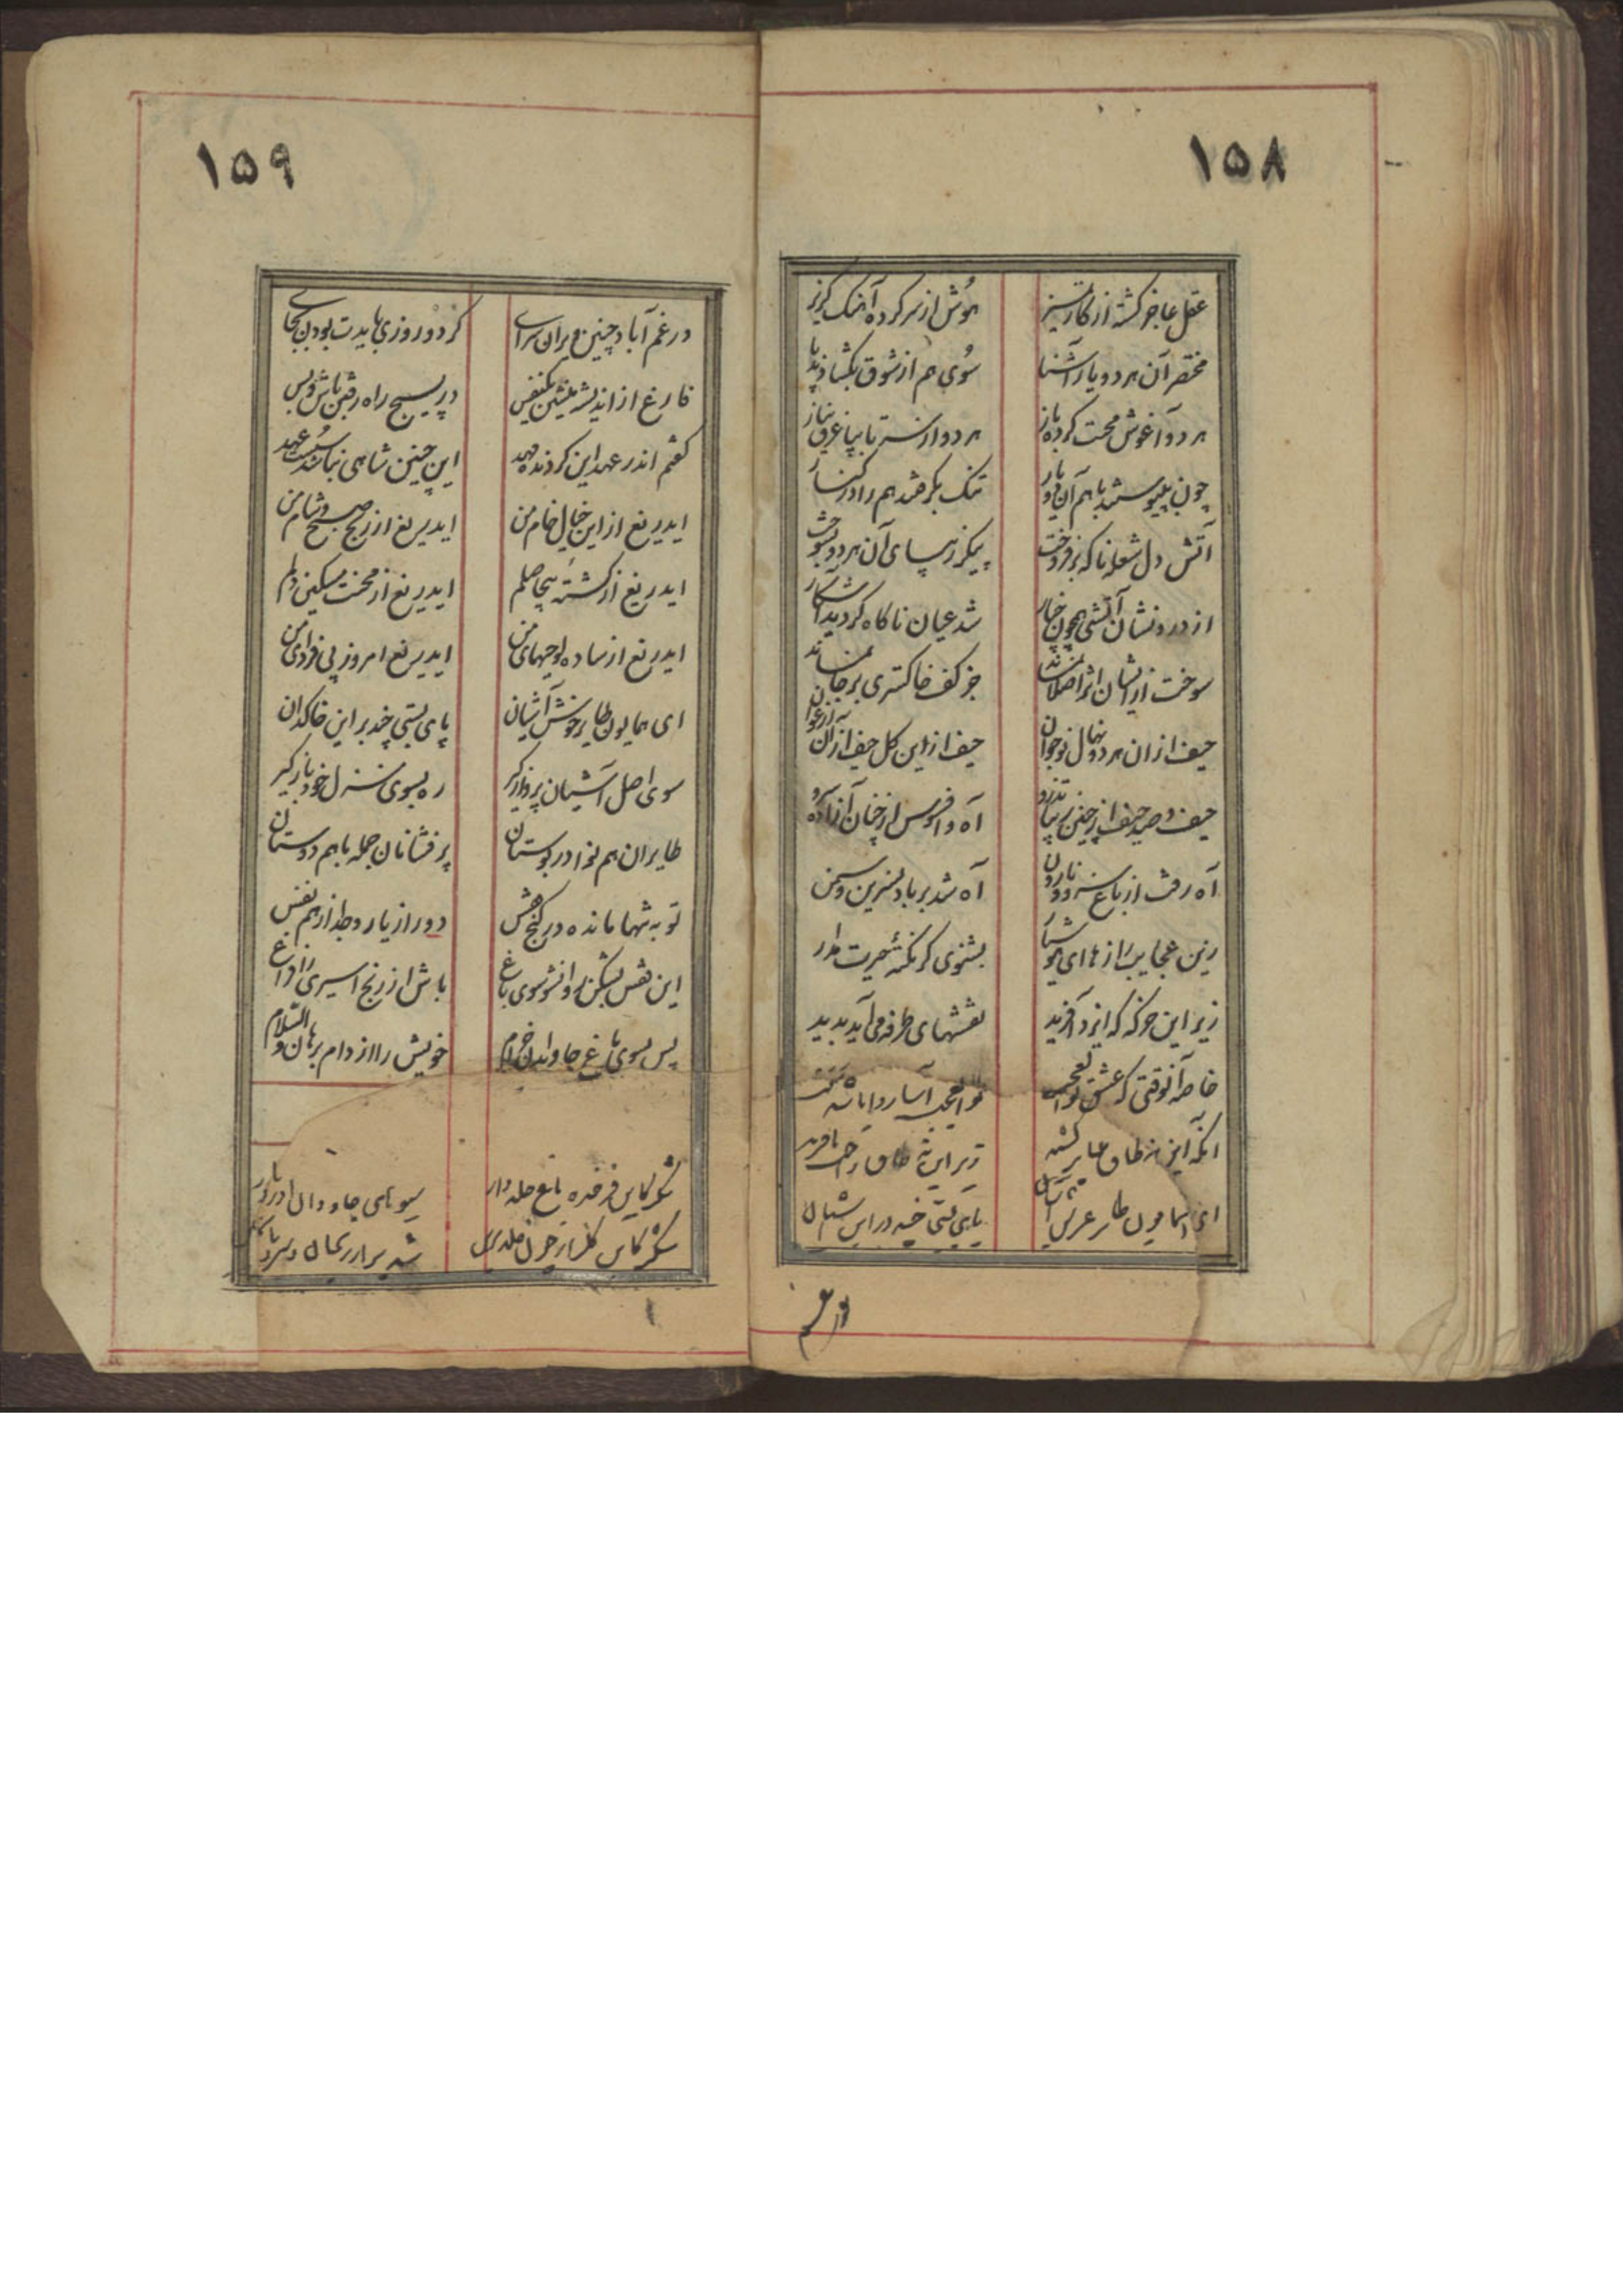 ١۵٨
عقل عاجز گشته از کار تمیز
هوش از سر کرده آهنگ گریز
مختصر آن هر دو یار آشنا
سوی هم از شوق بگشادند پا
هر دو آغوش محبت کرده باز
هر دو از سر تا بپا غرق نیاز
چون بپیوستند با هم آن دو یار
تنک بگرفتند هم را در کنار
آتش دل شعله ناکه برفروخت
پیکر زیبای آن هر دو بسوخت
از درونشان آتشی همچون خیار
شد عیان ناکاه کردید آشکار
سوخت از ایشان اثر اصلا نماند
جز کف خاکستری بر جا نماند
حیف از ان هر دو نهال نوجوان
حیف از این کل حیف از آن ارغوان
حیف و صد حیف از چنین زیبا تذرو
آه و افسوس از چنان آزاده سرو
آه رفت از باغ سرو و نارون
آه شد بر باد نسرین و سمن
زین عجایب رازها ای هوشیار
بشنوی کر نکتهٔ حیرت مدار
زیر این خرکه که ایزد آفرید
نقشهای طرفه می آید پدید
خاصه آنوقتی که عشق بوالعجب
بوالعجب آسار
انکه این نه طاق
زیر این نه طاق
ای همایون طایر عرش آشیان
پای بستی چند در این
در غم
١۵٩
در غم آباد چنین ویران سرای
کر دو روزی بایدت بودن بجای
فارغ از اندیشه بنشین یکنفس
در بسیج راه رفتن باش و بس
کفتم اندر عهد این کردنده مهد
این چنین شاهی نباشد سست عهد
ایدریغ از این خیال خام من
ایدریغ از رنج صبح و شام من
ایدریغ از کشتهٔ بیحاصلم
ایدریغ از محنت مسکین دلم
ایدریغ از ساده لوحیهای من
ایدریغ امروز بی فردای من
ای همایون طایر خوش آشیان
پای بستی چند بر این خاکدان
سوی اصل آشیان پرواز کیر
ره بسوی منزل خود باز کیر
طایران هم نوا در بوستان
پر فشانان جمله با هم دوستان
تو به تنها مانده در کنج قفس
دور از یار و جدا از هم نفس
این قفس بشکن روانشو سوی باغ
باش از رنج اسیری را فراغ
پس بسوی باغ جاودان خرام
خویش را از دام برهان والسلام
شکر کاین فرخنده باغ
میوهای جاودان
شکر کاین کلزار چون خلد برین
شد پر از ریحان و